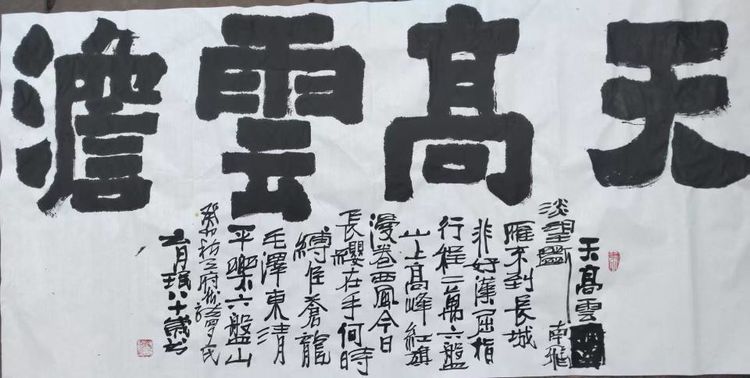 天髙雲澹
天髙雲
淡望斷南飛
雁不到長城
非好漢屈指
行程二萬六盤
山上高峰紅旗
漫卷西風今日
長纓在手何時
縛住蒼龍
毛澤東清
平樂六盤山
癸卯
月八十歲